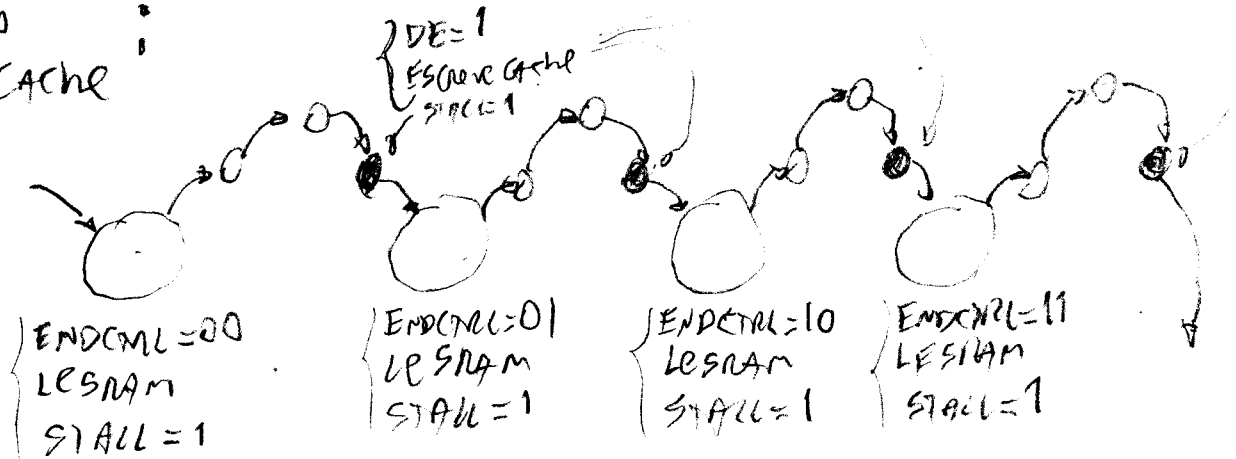 CAChe
DE=1
ESCReVE CAChe
STALL=1
ENDCTRL=00
LeSRAM
STALL=1
ENDCTRL=01
LeSRAM
STALL=1
ENDCTRL=10
LeSRAM
STALL=1
ENDCTRL=11
LESRAM
STALL=1